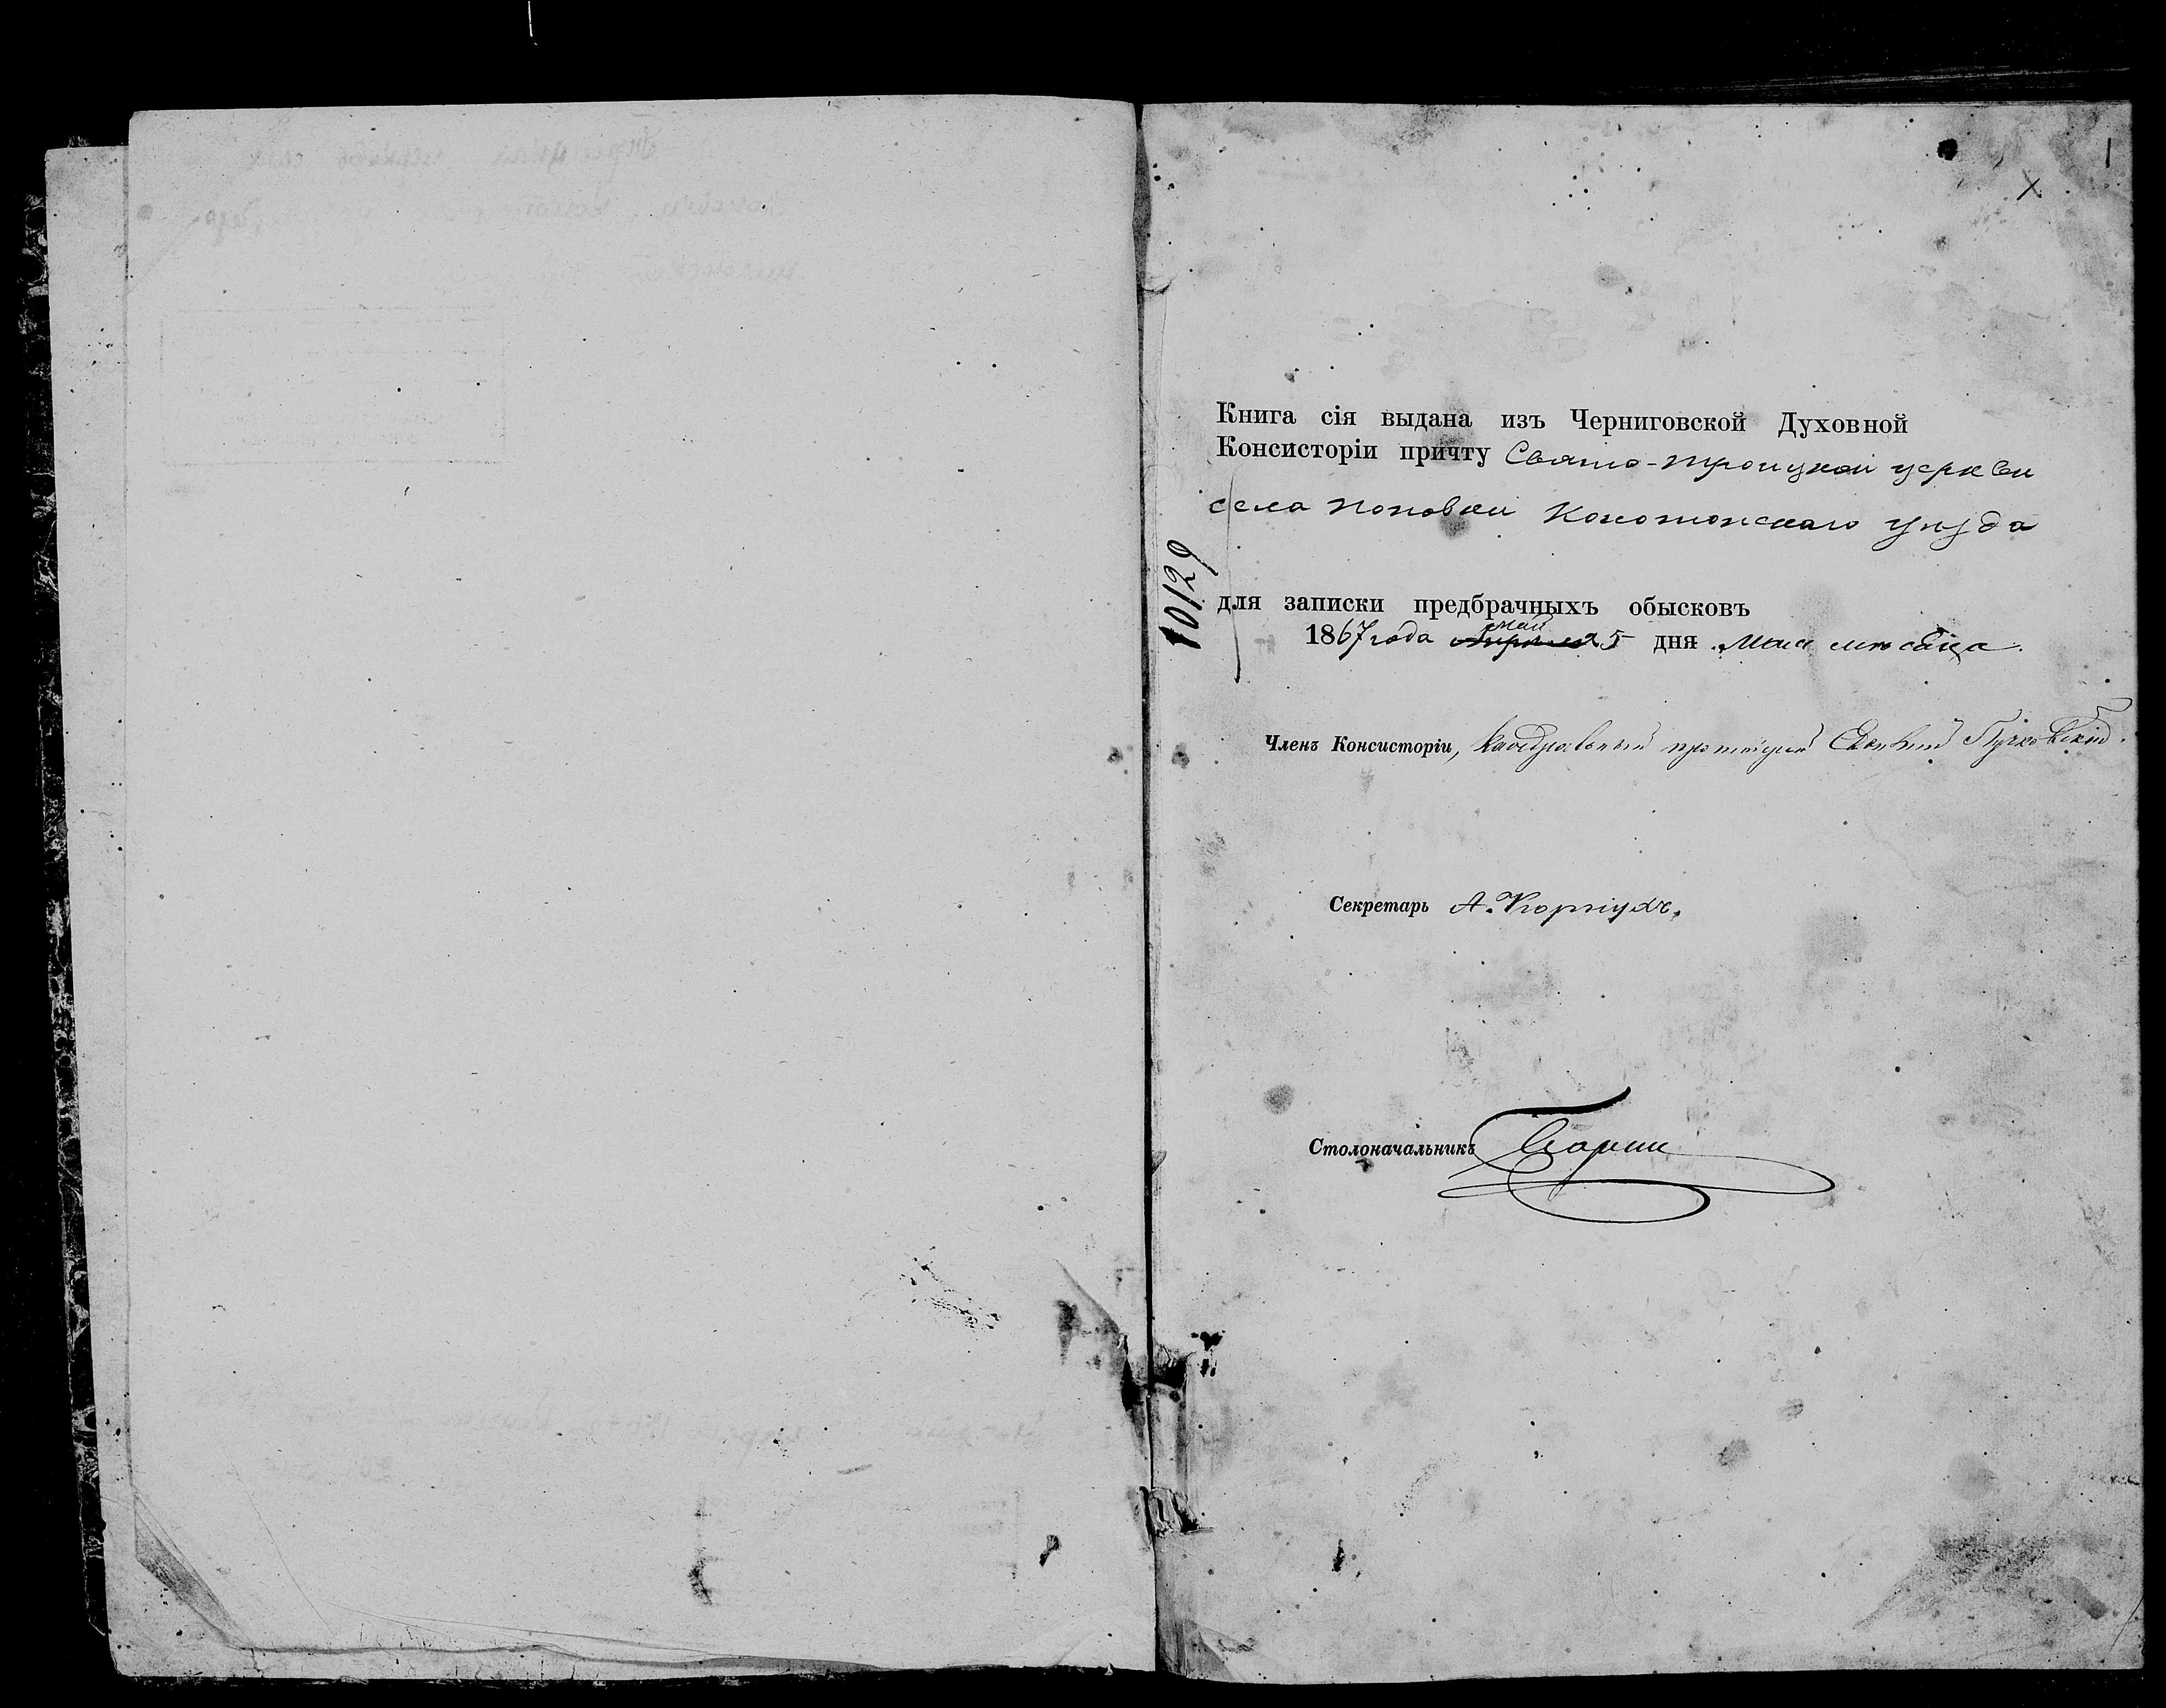 1
X
Книга сія выдана изъ Черниговской Духовной
Консисторіи причту Свято-троицкой церкви
села Поповки Конотопскаго уѣзда
10/29
для записки предбрачныхъ обысковъ
май
1867 года Апрѣля 25 дня Мая мѣсяца.
Членъ Консисторіи, Каѳедральный протоіерей Пучковскій.
Секретарь А.
Столоначальникъ